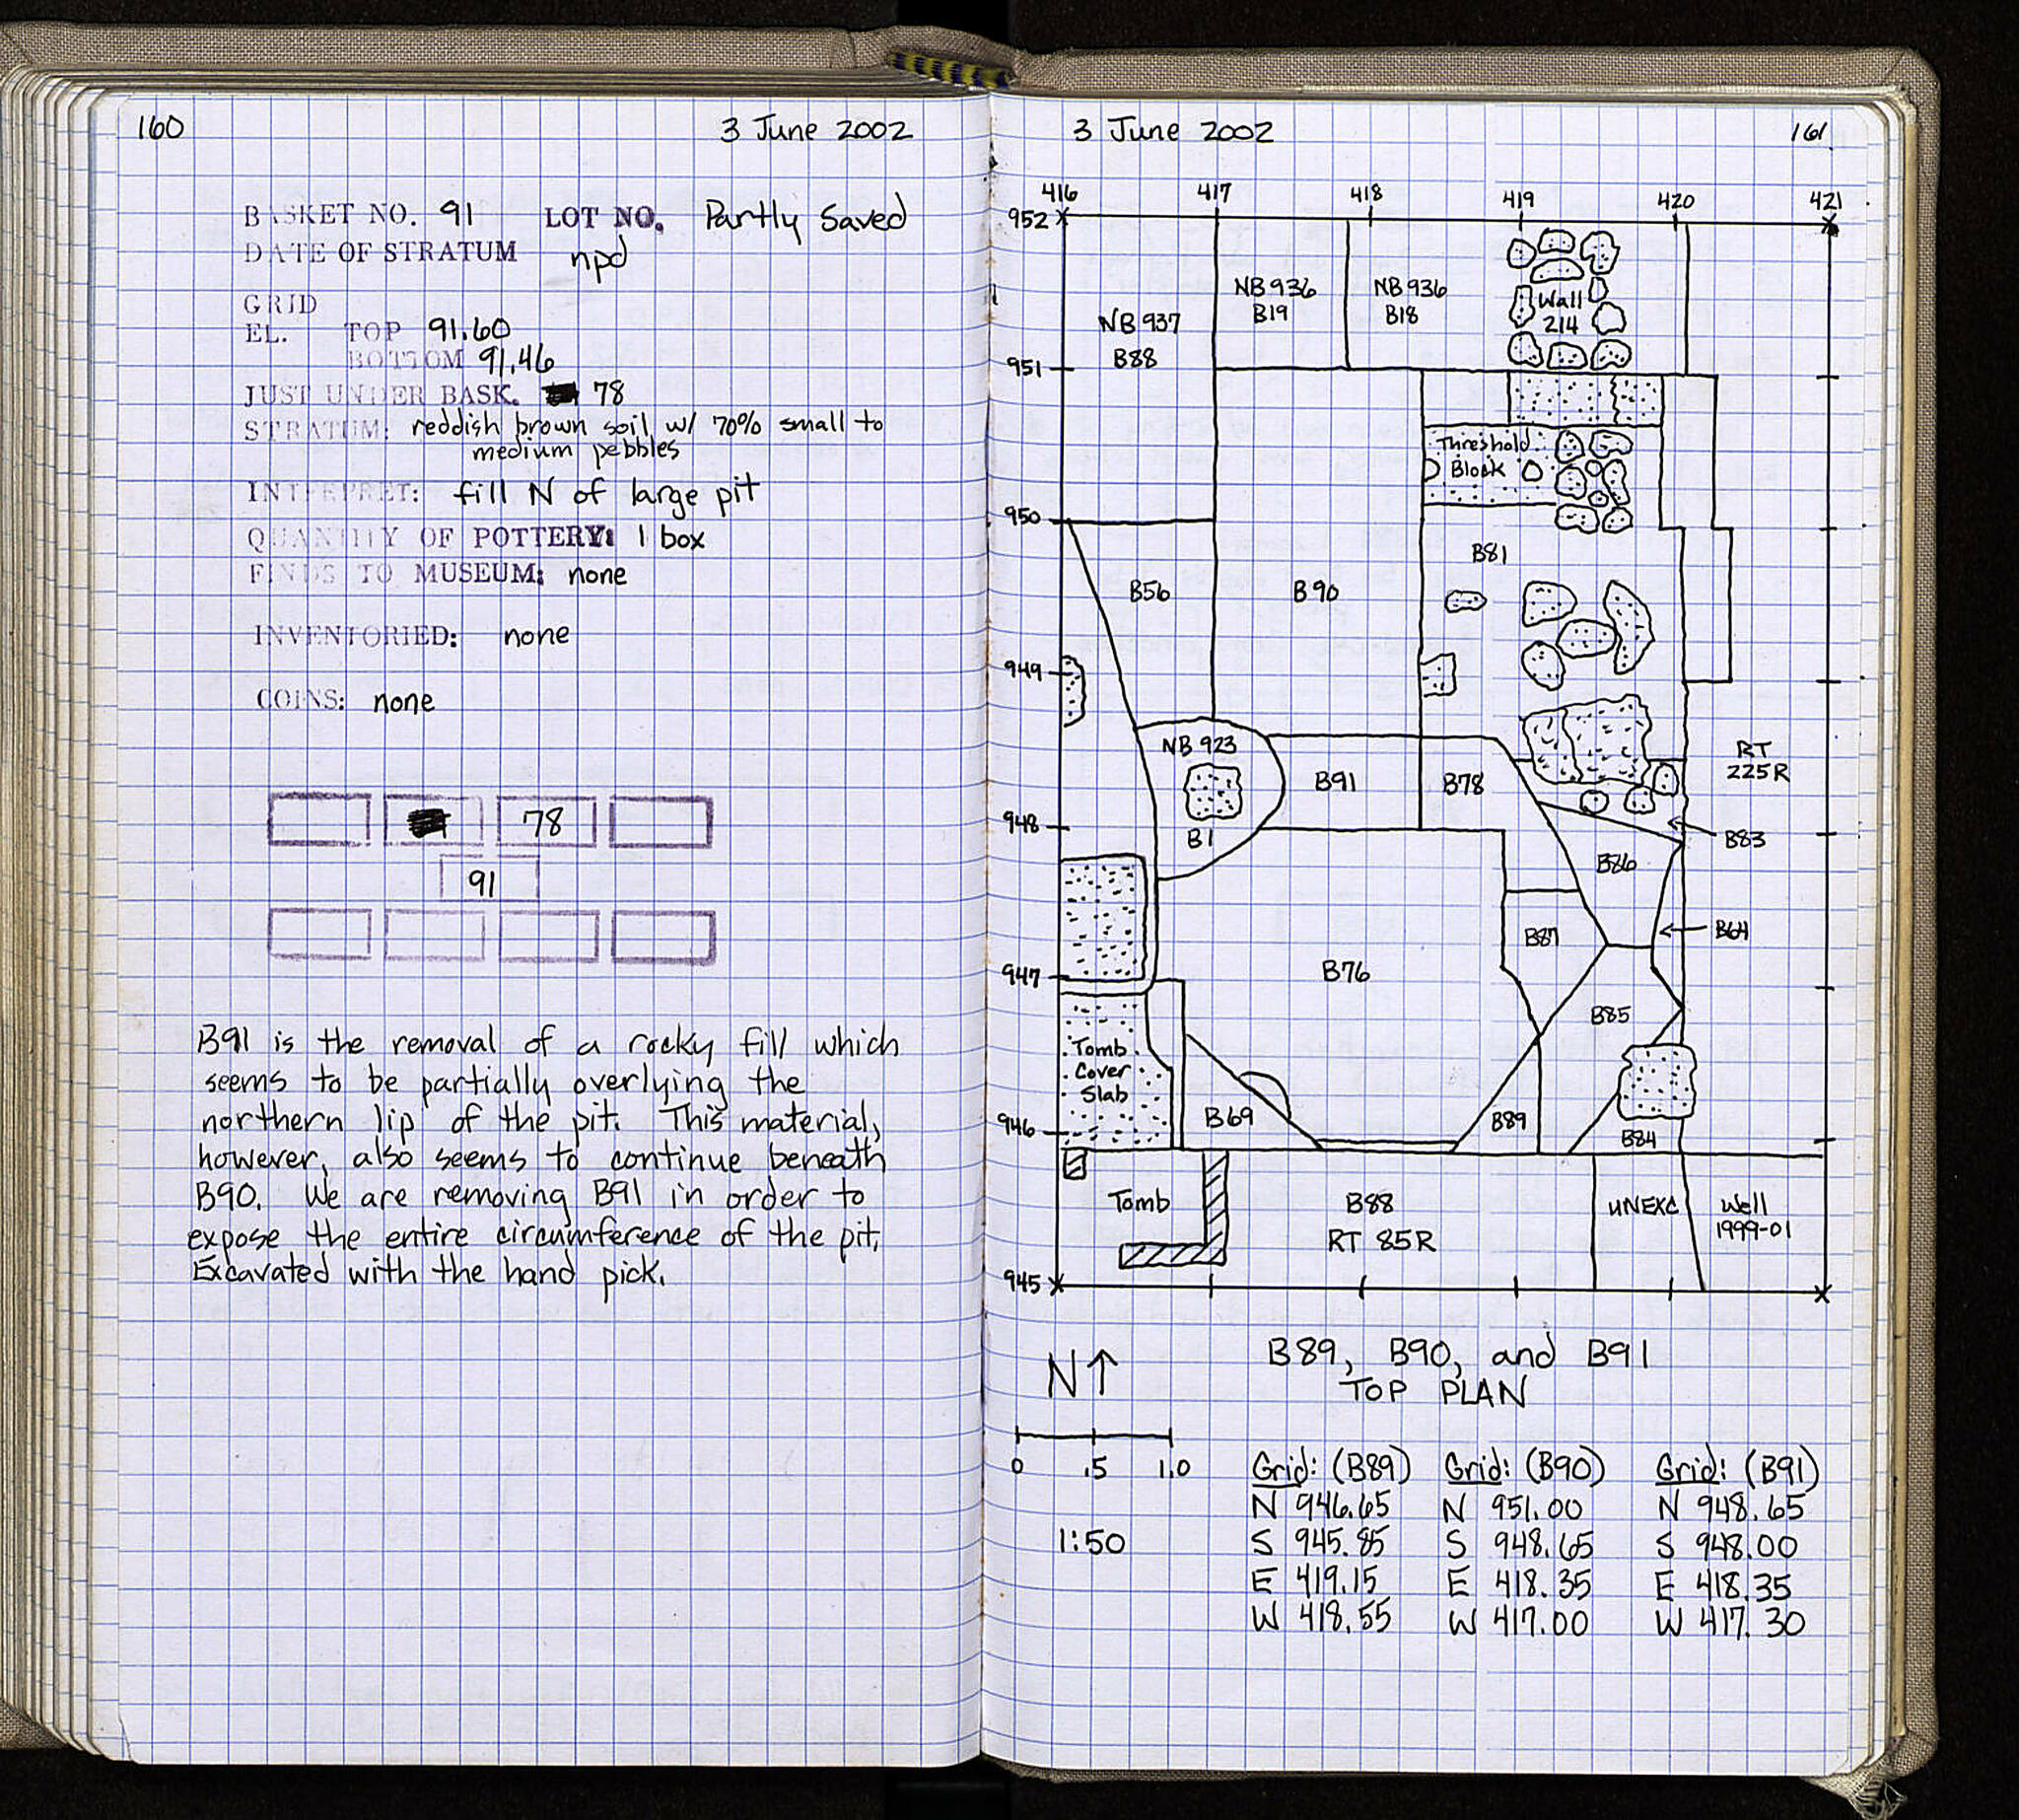 160
3 June 2002
BASKET NO. 91 LOT NO. Partly Saved
DATE OF STRATUM npd
GRID
EL. TOP 91.60
BOTTOM 91.46
JUST UNDER BASK. 78
STRATUM: reddish brown soil w/ 70% small to
medium pebbles
INTERPRET: fill N of large pit
QUANTITY OF POTTERY: 1 box
FINDS TO MUSEUM: none
INVENTORIED: none
COINS: none
78
91
B91 is the removal of a rocky fill which
seems to be partially overlying the
northern lip of the pit. This material,
however, also seems to continue beneath
B90. We are removing B91 in order to
expose the entire circumference of the pit.
Excavated with the hand pick.
3 June 2002
161
416 417 418 419 420 421
952
NB 937
B88
NB 936
B19
NB 936
B18
Wall
214
951
Threshold
Block
950
B81
B56
B90
949
NB 923
B1
B91
B78
RT
225R
948
B83
B86
B87
B64
947
B76
B85
Tomb
Cover
Slab
946
B69
B89
B84
Tomb
B88
RT 85R
UNEXC
Well
1999-01
945
N↑
B89, B90, and B91
TOP PLAN
0 .5 1.0
1:50
Grid: (B89) Grid: (B90) Grid: (B91)
N 946.65 N 951.00 N 948.65
S 945.85 S 948.65 S 948.00
E 419.15 E 418.35 E 418.35
W 418.55 W 417.00 W 417.30